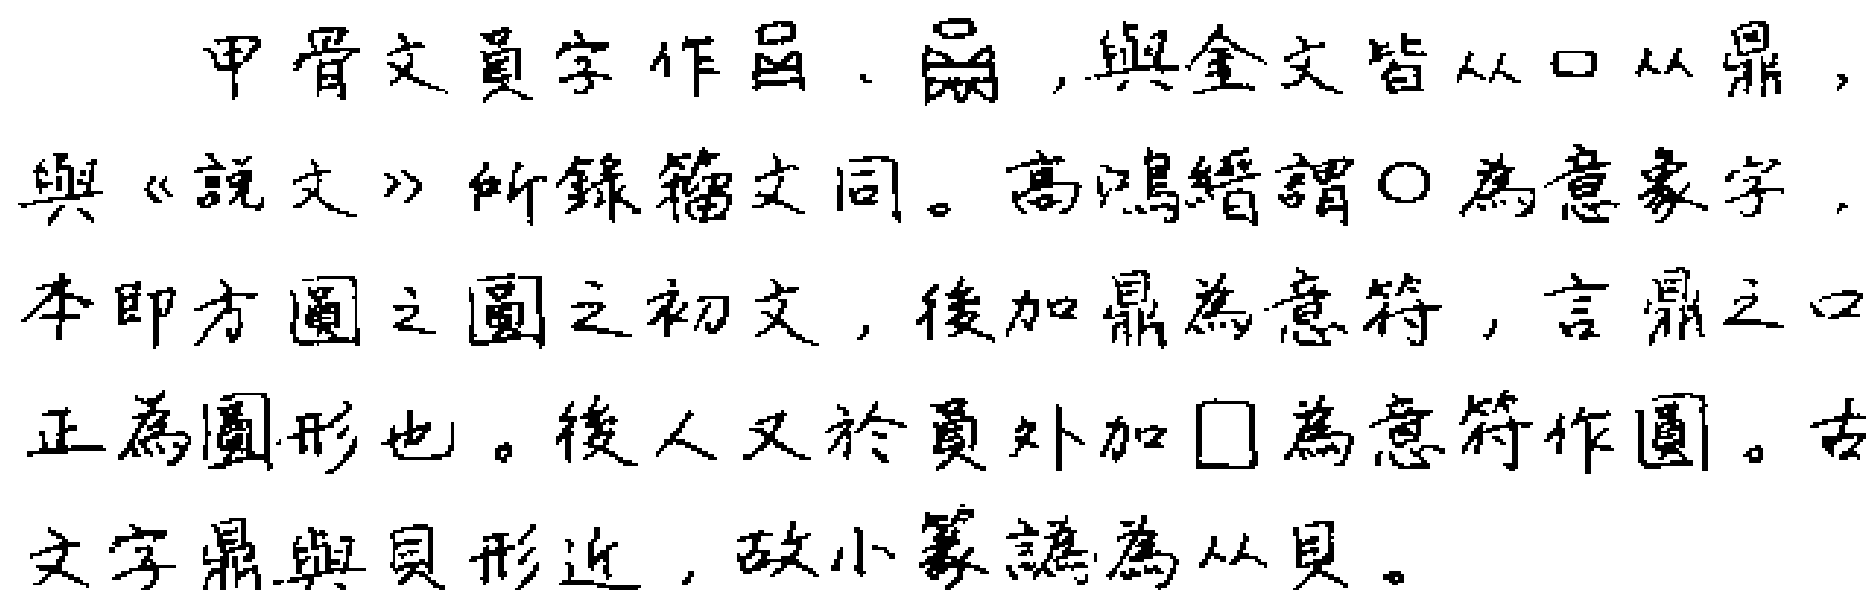 甲骨文員字作、,與金文皆从口从鼎,
與《說文》所錄籀文同。高鴻縉謂○為意象字,
本即方圓之圓之初文,後加鼎為意符,言鼎之口
正為圓形也。後人又於員外加囗為意符作圓。古
文字鼎與貝形近,故小篆譌為从貝。